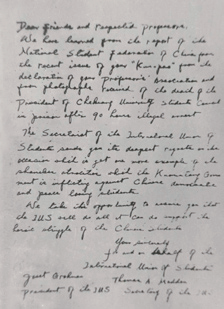 Dear friends and respected professors,
We have learned from the report of the
National Student Federation of China, from
the recent issue of your "Kuo-pao" from the
declaration of your Professors' Association and
from photographs received of the death of the
President of Chekiang University Students' Council
in prison after 90 hours illegal arrest
The Secretariat of the International Union of
Students sends you its deepest regrets on the
occasion which is yet one more example of the
shameless atrocities which the Kuomintang Govern-
ment is inflicting against Chinese democrats
and peace loving students.
We take this opportunity to assure you that
the IUS will do all it can to support the
heroic struggle of the Chinese students
Yours sincerely
for and on behalf of the
International Union of Students
Josef Grohman Thomas Madden
President of the IUS Secretary of the IUS